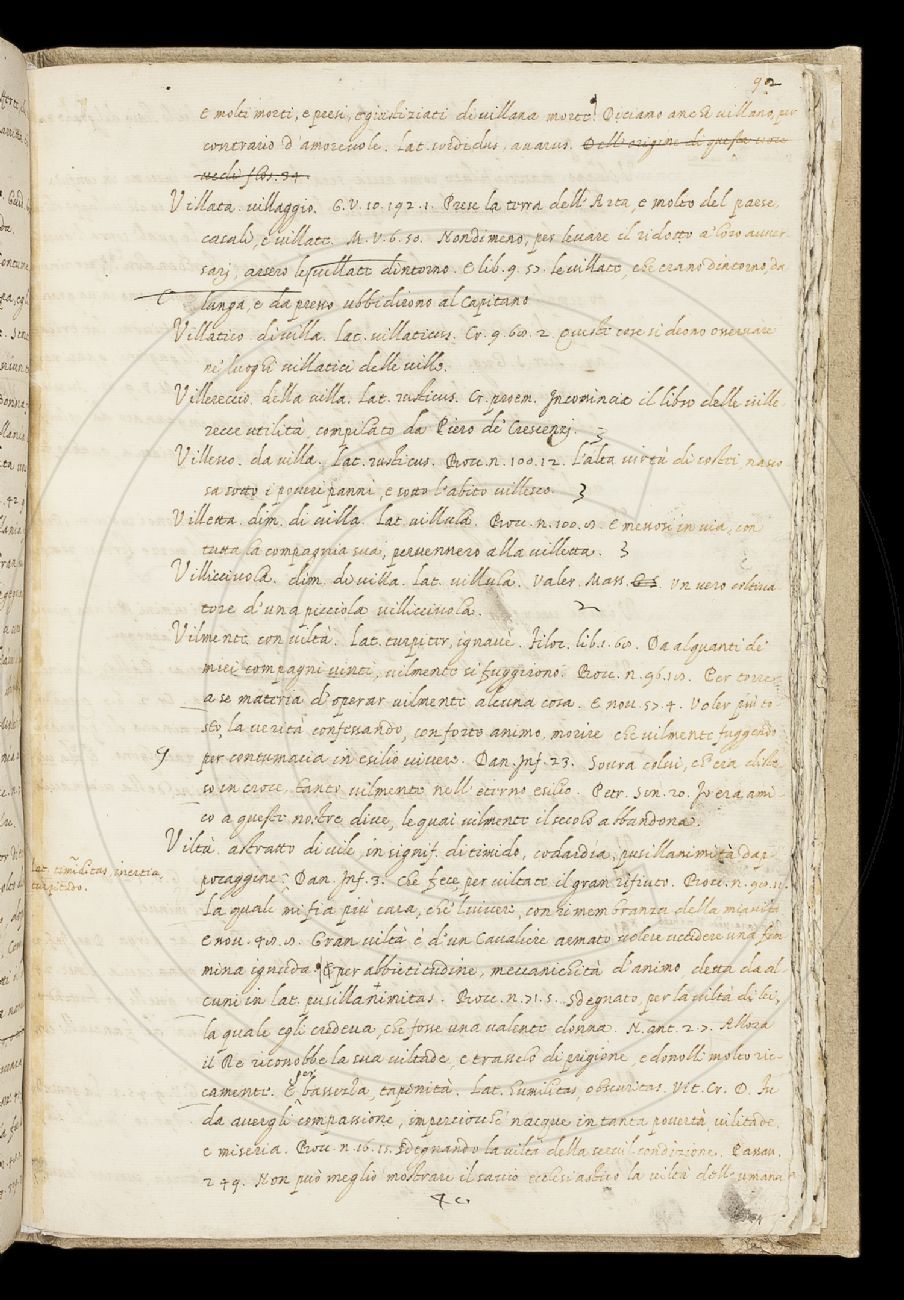 92
e molti morti, e presi, e giustiziati di villana morte. Diciano anche villano, per
contrario d'amorevole. Lat. sordidus. avarus. Dell'origine di questa voce
vedi Flos. 34.
Villata. villaggio. G.V. 10. 192. 1. Prese la terra dell'Arta, e molto del paese,
casali, e villate. M.V. 6. 50. Nondimeno, per levare il ridotto a' loro avver
sarj, arsero le villate dintorno. E lib. 9. 57. le villate, che erano dintorno, da
lunga, e da presso ubbidirono al Capitano
Villatico. di villa. Lat. villaticus. Cr. 9. 68. 2. Queste cose si deono osservare
ne' luoghi villatici delle ville.
Villereccio. della villa. Lat. rusticus. Cr. proem. Incomincia il libro delle ville
recce utilità, compilato da Piero de' Crescenzj.
Villesco. da villa. Lat. rusticus. Bocc. n. 100. 12. L'alta virtù di costei nasco
sa sotto i poveri panni, e sotto l'abito villesco.
Villetta. dim. di villa. Lat. villula. Bocc. n. 100. 8. E messosi in via, con
tutta la compagnia sua, pervennero alla villetta.
Villicciuola. dim. di villa. Lat. villula. Valer. Mass. Un vero coltiva
tore d'una piccola villicciuola.
Vilmente. con viltà. Lat. turpiter, ignavè. Filoc. lib. 1. 60. Da alquanti di
miei compagni vinti, vilmente si fuggirono. Bocc. n. 96. 18. Per torre
a se materia d'operar vilmente alcuna cosa. E nov. 57. 4. Voler più to
sto, la verità confessando, con forte animo, morire che vilmente fuggendo
per contumacia in esilio vivere. Dan. Inf. 23. Sovra colui, ch'era diste
so in croce, tanto vilmente nell'eterno esilio. Petr. Son. 20. Io era ami
co a queste nostre dive, le quai vilmente il secolo abbandona.
Viltà. astratto di vile, in signif. di timido, codardia, pusillanimità dap
pocaggine. Dan. Inf. 3. Che fece per viltate il gran rifiuto. Bocc. n. 98.
Lat. timiditas, inertia,
turpitudo.
La quale mi fia più cara, che 'l vivere, con rimembranza della mia viltà
E nov. 48. 8. Gran viltà è d'un Cavaliere armato volere uccidere una fem
mina ignuda. per abbiettitudine, meccanichità d'animo detta da al
cuni in lat. pusillanimitas. Bocc. n. 71. 5. Sdegnato, per la viltà di lei,
la quale egli credeva, che fosse una valente donna. N. ant. 2. 7. Allora
il Re riconobbe la sua viltade, e trasselo di prigione, e donolli molto ric
camente. per bassezza, tapinità. Lat. humilitas, obscuritas. Vit. Cr. D. Iu
da avergli compassione, imperciocchè nacque in tanta povertà vilitade,
e miseria. Bocc. n. 16. 15. Sdegnando la viltà della servil condizione. Passav.
249. Non può meglio mostrare il savio ecclesiastico la viltà dell'umana